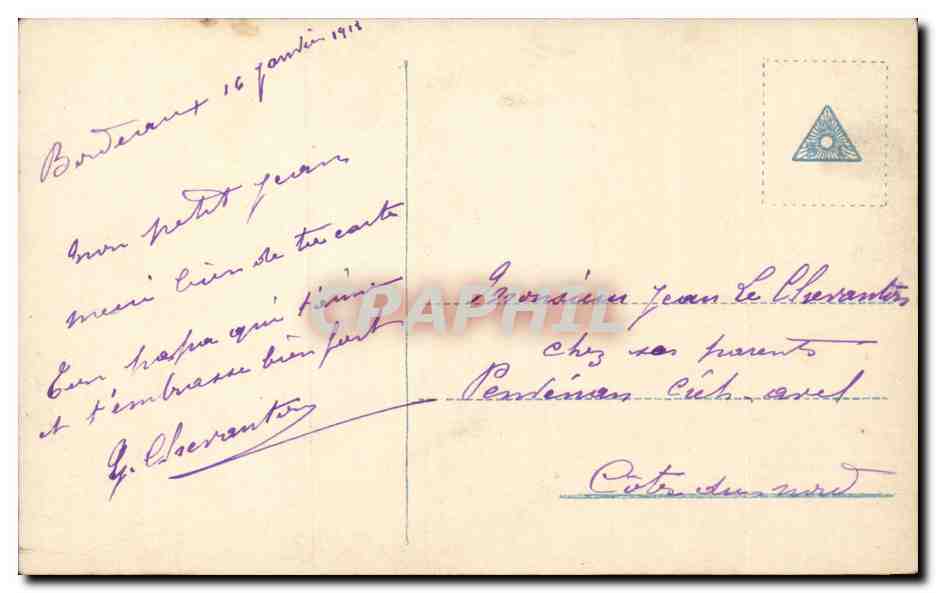 Bordeaux 16 janvier 1918
mon petit jean
merci bien de ta carte
Ton papa qui t'aime
et t'embrasse bien fort
Y. Le Chevanton
Monsieur jean Le Chevanton
chez ses parents
Penvénan
Côtes du nord
CPARPHIL